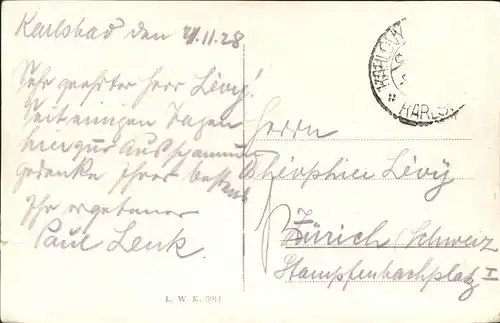 Karlsbad den 21.11.28
Sehr geehrter Herr Lévy!
Seit einigen Tagen
hier zur Ausspannung
gedenke Ihrer bestens
Ihr ergebener
Paul Lenk.
KARLOV
KARLSB
Herrn
Théophile Lévy
Zürich (Schweiz
Stampfenbachplatz I
L. W. K. 5911